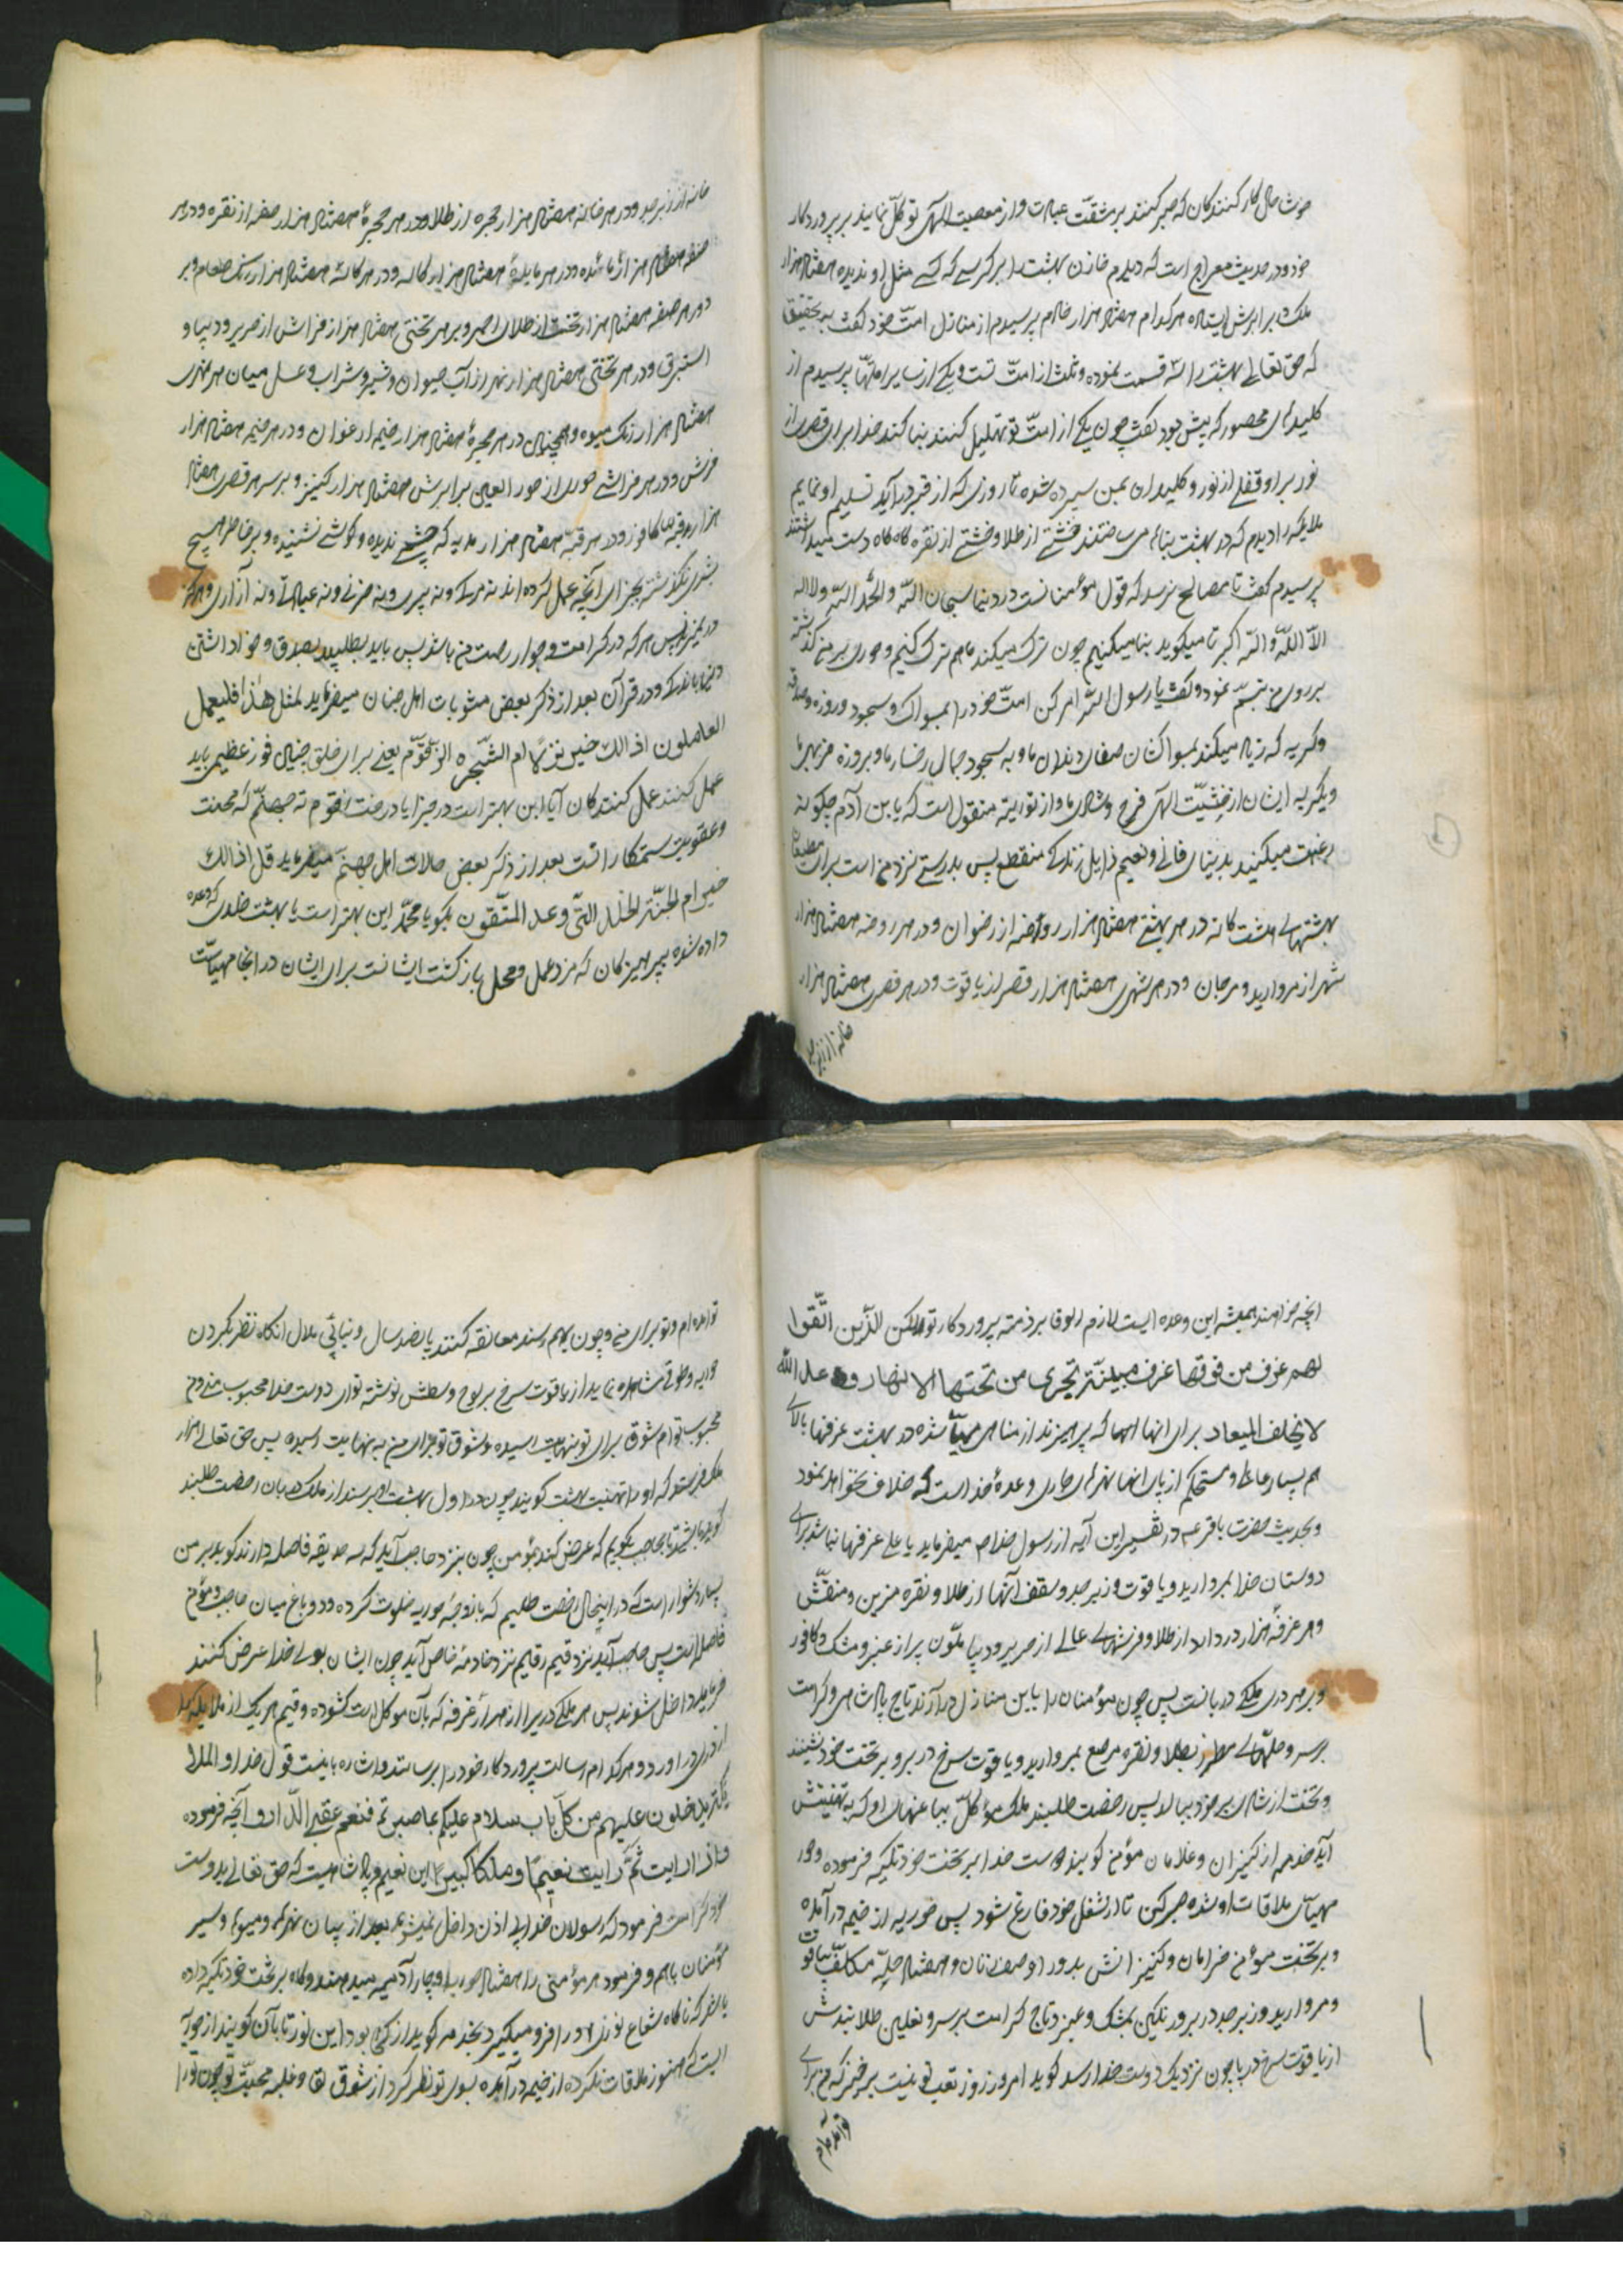 خوش حال کار کنندکان که صبر کنند بر مشقت عبادت و از معصیت الهی توکل نمایند بر پروردکار
خود و در حدیث معراج است که دیدم خازن بهشت را بر کرسیی که کسی مثل او ندیده هفتاد هزار
ملک در برابرش ایستاده هر کدام هفتاد هزار خادم پرسیدم از منازل امت خود کفت بتحقیق
که حق تعالی بهشت را سه قسمت نموده دو ثلث از امت تست و یکی از سایر امتها پرسیدم از
کلیدهای محصور که پیش بود کفت چون یکی از امت تو تهلیل کنند بنا کند خدا برای قصری از
نور بر او قفلی از نور و کلید آن بمن سپرده شده تا روزی که از قبر درآید تسلیم او نمایم
ملایکه را دیدم که در بهشت بناها می ساختند خشتی از طلا و خشتی از نقره کاه کاه دست میداشتند
پرسیدم کفت تا مصالح برسد که قول مؤمنانست در دنیا سبحان الله والحمد لله ولا اله
الا الله والله اکبر تا میکوید بنا میکنیم چون ترک میکند ما هم ترک کنیم و حوری بر من کذشته
بر روی من تبسم نمود و کفت یا رسول الله امر کن امت خود را بمسواک و سجود و روزه و صدقه
و کریه که زیاد میکند بمسواک شان صفای دندان ما و به سجود جمال رخسار ما و بروزه
و بکریه ایشان از خشیت الهی فرح و شادی ما و از توریة منقول است که یا بن آدم چکونه
رغبت میکنید بدنیای فانی و نعیم زایل زندکی منقطع پس بدرستی نزد من است برای مطیعان
بهشتهای هشت کانه در هر بهشتی هفتاد هزار روضه از رضوان و در هر روضه هفتاد هزار
شهر از مروارید و مرجان و در هر شهری هفتاد هزار قصر از یاقوت و در هر قصری هفتاد هزار
خانه از زبرجد
خانه از زبرجد و در هر خانه هفتاد هزار حجره از طلا و در هر حجرهٔ هفتاد هزار صفه از نقره و در هر
صفه هفتاد هزار مائده و در هر مایدهٔ هفتاد هزار کاسه و در هر کاسهٔ هفتاد هزار رنک طعام و بر
دور هر صفه هفتاد هزار تخت از طلای احمر و بر هر تختی هفتاد هزار فراش از حریر و دیبا و
استبرق و در هر تختی هفتاد هزار نهر از آب حیوان و شیر و شراب و عسل میان هر نهری
هفتاد هزار رنک میوه و همچنان در هر حجرهٔ هفتاد هزار خیمه ارغوان و در هر خیمه هفتاد هزار
فرش و در هر فراشی حوری از حور العین برابرش هفتاد هزار کنیز و بر سر هر قصری هفتاد
هزار قبه کافور و در هر قبه هفتاد هزار هدیه که چشم ندیده و کوشی نشنیده و بر خاطر هیچ
بشری نکذشته بجزای آنچه عمل کرده اند نه مرک و نه پیری و نه حزنی و نه عبادتی و نه آزاری
پس هر که در کرامت و جوار رحمت من باشد پس باید بطلبد بصدق و خوار داشتن
دنیا باندک و در قرآن بعد از ذکر بعض مثوبات اهل جنان میفرماید لمثل هذا فلیعمل
العاملون اذالک خیر نزلا ام الشجرة الزقوم یعنی برای خلق چنان فوز عظیمی باید
عمل کنند عمل کنندکان آیا این بهتر است در جزا یا درخت زقوم ته جهنم که محنت
و عقوبت ستمکارانست بعد از ذکر بعض حالات اهل جهنم میفرماید قل اذالک
خیر ام الجنة الخلد التی وعد المتقون بکو یا محمد این بهتر است یا بهشت خلدی که وعده
داده شده بپرهیزکان که مزد عمل و محل باز کشت ایشانست برای ایشان در آنجا مهیاست
آنچه خواهند همیشه این وعده ایست لازم الوفا بر ذمه پروردکار تو لکن الذین اتقوا
لهم غرف من فوقها غرف مبینة تجری من تحتها الانهار وعد الله
لا یخلف المیعاد برای آنها که پرهیزند از مناهی مهیا شده در بهشت غرفها بالای
هم بسیار عالی و مستحکم از پای آنها نهرهای جاری وعدهٔ خداست که خلاف نخواهد نمود
و بحدیث حضرت باقر عم در تفسیر این آیه از رسول خدا ص میفرماید یا علی غرفها بنا شد برای
دوستان خدا بمروارید و یاقوت و زبرجد و سقف آنها از طلا و نقره مزین و منقش
و هر غرفه هزار در دارد از طلا و فرشهای عالی از حریر و دیبا ملون پر از عنبر و مشک و کافور
و بر هر دری ملکی دربانست پس چون مؤمنان را باین منازل درآرند تاج پادشاهی و کرامت
بر سر و حلهای مطرز بطلا و نقره مرصع بمروارید و یاقوت سرخ در بر و بر تخت خود نشینند
و تخت از شادی بر خود ببالد پس رخصت طلبند ملک مؤکل بباغهای او که به تهنیتش
آید خدمه از کنیزان و غلامان مؤمن کویند دوست خدا بر تخت خود تکیه فرموده و حور
مهیای ملاقات او شده صبر کن تا از شغل خود فارغ شود پس حوریه از خیمه در آمده
و بر تخت مؤمن خرامان و کنیزانش بدور او صف زنان و هفتاد حله مکلف بیاقوت
و مروارید و زبرجد در بر رنکین بمشک و عنبر و تاج کرامت بر سر و نعلین طلا بندش
از یاقوت سرخ در پا چون نزدیک دوست خدا رسد کوید امروز روز تعب تو نیست برخیز که من برای
تو آمده ام
تو آمده ام و تو برای منی و چون بهم رسند معانقه کنند پانصد سال دنیائی ملال آنکاه نظر بکردن
حوریه و طوقی مشاهده نماید از یاقوت سرخ بر لوح وسطش نوشته تو ای دوست خدا محبوب منی و من
محبوب توام شوق برای تو بنهایت رسیده و شوق تو برای من به نهایت رسیده پس حق تعالی هزار
ملک فرستد که او را تهنیت بهشت کویند چون در اول بهشت او برسند از ملک دربان رخصت طلبند
کوید باشید تا بحاجب بکویم که عرض کند بمؤمن چون بنزد حاجب آید که سه حدیقه فاصله دارند کوید بر من
بسیار دشوار است که در اینحال رخصت طلبم که با زوجه حوریه خلوت کرده و دو باغ میان حاجب و مؤمن
فاصله است پس حاجب آید نزد قیم و قایم نزد خادمهٔ خاص آید چون ایشان بولی خدا عرض کنند
فرماید داخل شوند پس هر ملکی دریرا از هزار غرفه که بآن موکل است کشوده و قیم هر یک از ملایکه را
از دری در آورد و هر کدام رسالت پروردکار خود را برسانند و اشاره باینست قول خدا و الملا
ئکة یدخلون علیهم من کل باب سلام علیکم بما صبرتم فنعم عقبی الدار و آنچه فرموده
و اذا رایت ثم رایت نعیما و ملکا کبیرا این نعیم و پادشاهیست که حق تعالی بدوست
خود کرامت فرمود که رسولان خدا بی اذن داخل نمیشوند بعد از بیان نهرها و میوها و سیر
مؤمنان باهم و فرمود هر مؤمنی را هفتاد حوریه و چار آدمیه میدهند و کاه بر تخت خود تکیه داده
باشد که ناکاه شعاع نوری او را فرو میکیرد بخدمه کوید از کجا بود این نور تابان کویند از حوریه
ایست که هنوز ملاقات نکرده از خیمه در آمده بسوی تو نظر کرد از شوق لقا و غلبه محبت تو چون تو را